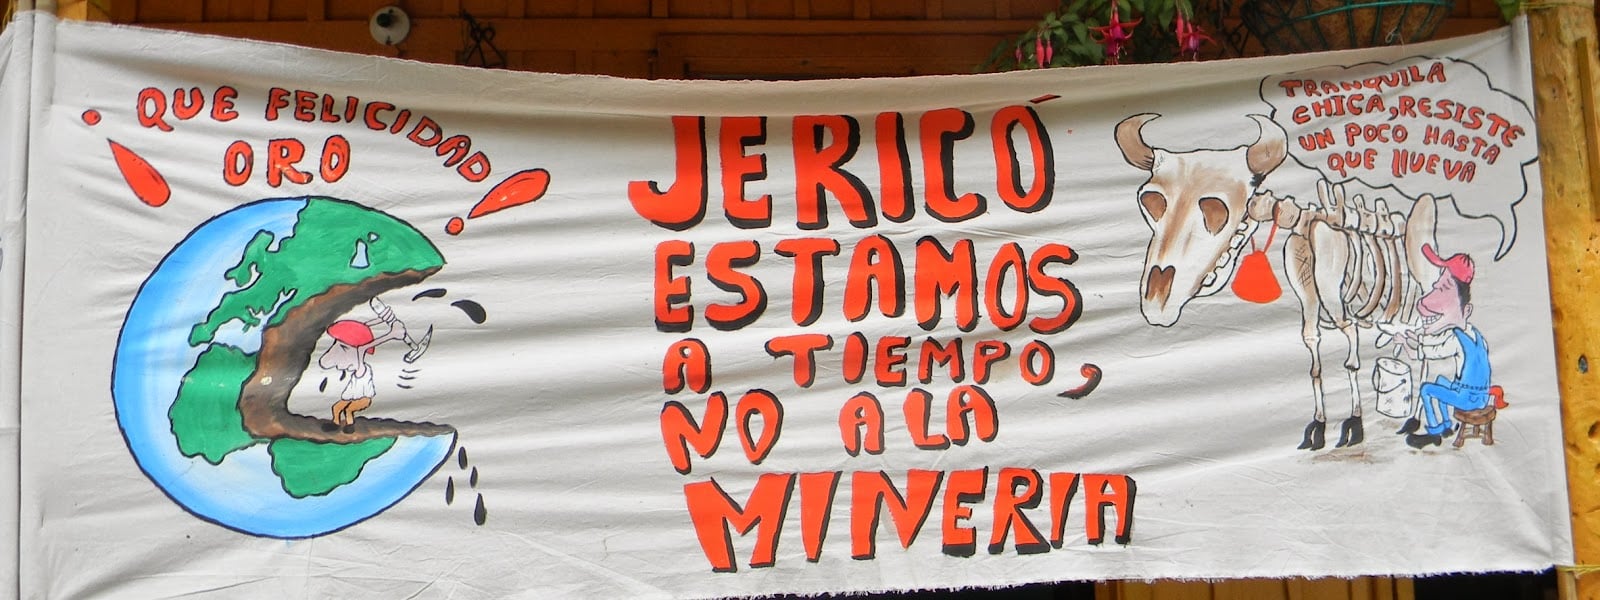 ¡QUE FELICIDAD!
ORO
JERICÓ
ESTAMOS
A TIEMPO,
NO A LA
MINERIA
TRANQUILA
CHICA, RESISTE
UN POCO HASTA
QUE llUEVA